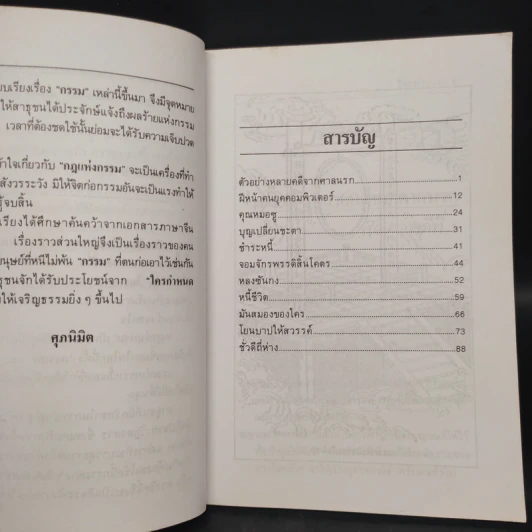 บเรียงเรื่อง “กรรม” เหล่านี้ขึ้นมา จึงมีจุดหมาย
ให้สาธุชนได้ประจักษ์แจ้งถึงผลร้ายแห่งกรรม
เวลาที่ต้องชดใช้นั้นย่อมจะได้รับความเจ็บปวด
าใจเกี่ยวกับ “กฎแห่งกรรม” จะเป็นเครื่องที่ทำ
สังวรระวัง มิให้จิตก่อกรรมอันจะเป็นแรงทำให้
รู้จบสิ้น
เรียงได้ศึกษาค้นคว้าจากเอกสารภาษาจีน
เรื่องราวส่วนใหญ่จึงเป็นเรื่องราวของคน
นุษย์ที่หนีไม่พ้น “กรรม” ที่ตนก่อเอาไว้เช่นกัน
ธุชนจักได้รับประโยชน์จาก “ใครกำหนด
ให้เจริญธรรมยิ่ง ๆ ขึ้นไป
ศุภนิมิต
สารบัญ
ตัวอย่างหลายคดีจากศาลนรก 1
ผีหน้าคนยุคคอมพิวเตอร์ 12
คุณหมอซู 24
บุญเปลี่ยนชะตา 31
ชำระหนี้ 41
จอมจักรพรรดิสิ้นโคตร 44
หลงซันกง 52
หนี้ชีวิต 59
มันสมองของใคร 66
โยนบาปให้สวรรค์ 73
ชั่วดีถี่ห่าง 88